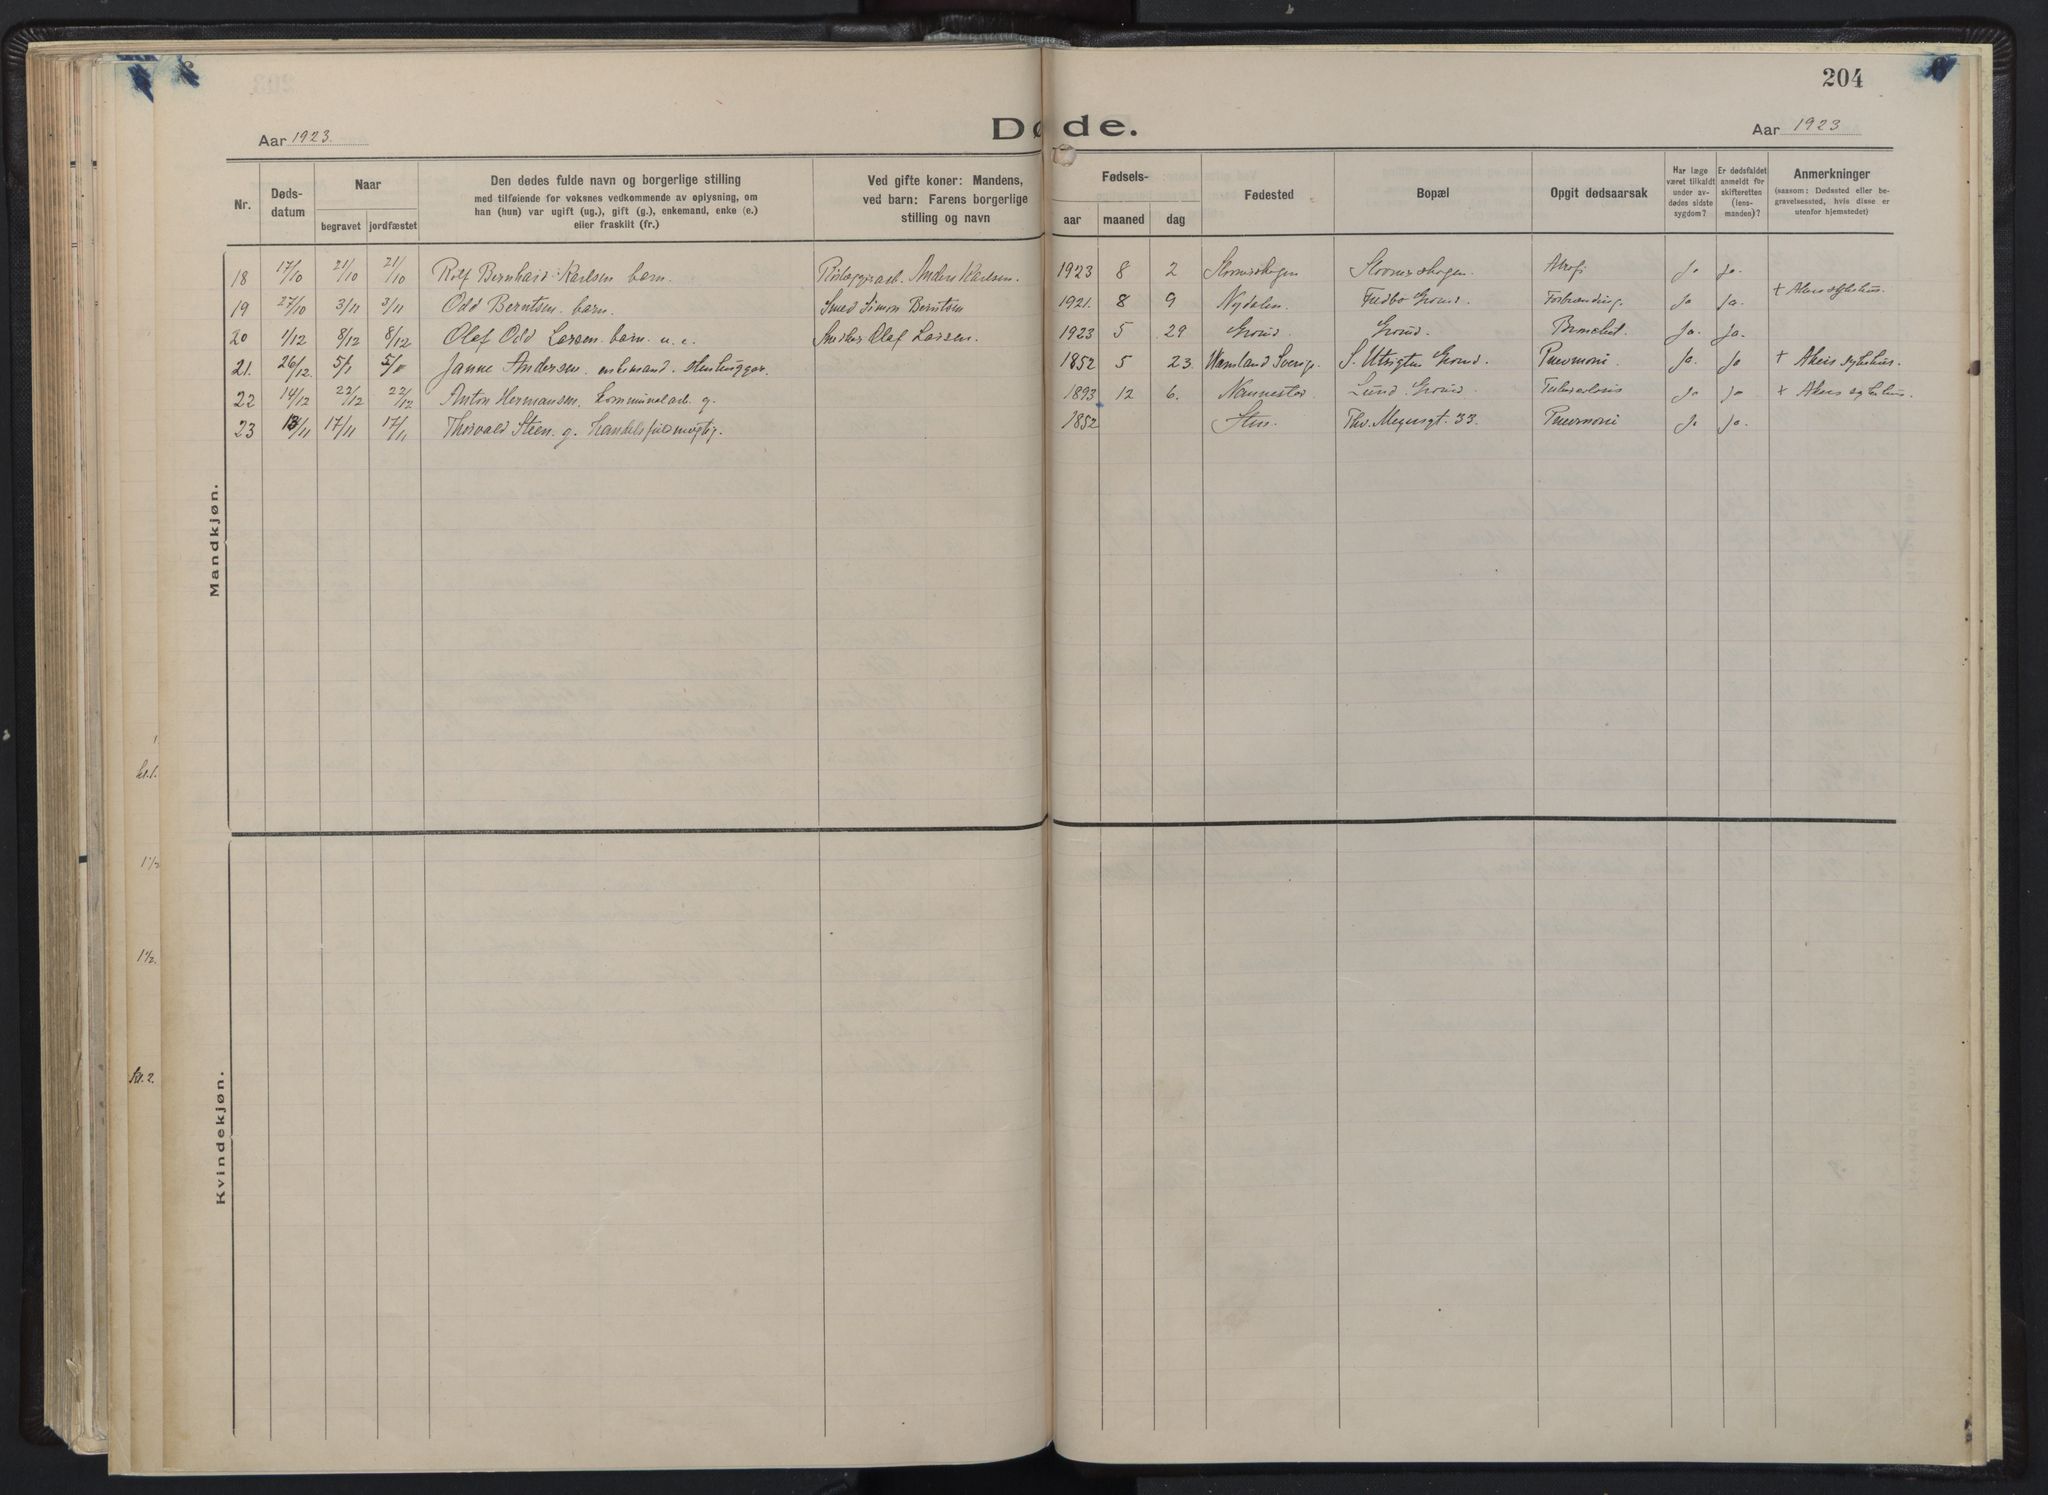 204
Døde.
Aar 1923.
Aar 1923
Nr.
Døds-
datum
Naar
begravet
jordfæstet
Den dødes fulde navn og borgerlige stilling
med tilføiende for voksnes vedkommende av oplysning, om
han (hun) var ugift (ug.), gift (g.), enkemand, enke (e.)
eller fraskilt (fr.)
Ved gifte koner: Mandens,
ved barn: Farens borgerlige
stilling og navn
Fødsels-
aar
maaned
dag
Fødested
Bopæl
Opgit dødsaarsak
Har læge
været tilkaldt
under av-
dødes sidste
sygdom?
Er dødsfaldet
anmeldt for
skifteretten
(lens-
manden)?
Anmerkninger
(saasom: Dødssted eller be-
gravelsessted, hvis disse er
utenfor hjemstedet)
Mandkjøn.
18 17/10 21/10 21/10 Rolf Bernhard Karlsen barn. Anders Karlsen. 1923 8 2 Atrofi Ja Ja.
19 27/10 3/11 3/11 Odd Berntsen. barn. Smed Simon Berntsen 1921. 8 9 Nydalen. Grorud. Forbrænding. Ja Ja. + Akers sykehus.
20 1/12 8/12 8/12 Olaf Odd Larsen. barn. u. e. Snekker Olaf Larsen. 1923 5 29 Grorud. Grorud. Ja. Ja.
21. 26/12. 5/1 Janne Andersen. enkemand. stenhugger. 1852 5 23. Sverige. Grorud. Pneumoni. Ja. Ja + Akers sykehus.
22 14/12 22/12 22/12 Anton Hermansen. kommunalarb. g. 1893 12 6. Nannestad. Lund. Grorud. Tuberculosis Ja Ja + Akers sykehus.
23 13/11 17/11 17/11 Thorvald Steen. g. Handelsfuldmægtig. 1852 Thv. Meyersgt. 33. Pneumoni Ja Ja.
Kvindekjøn.
kl. 1.
1 1/2
1 1/2.
kl. 2.